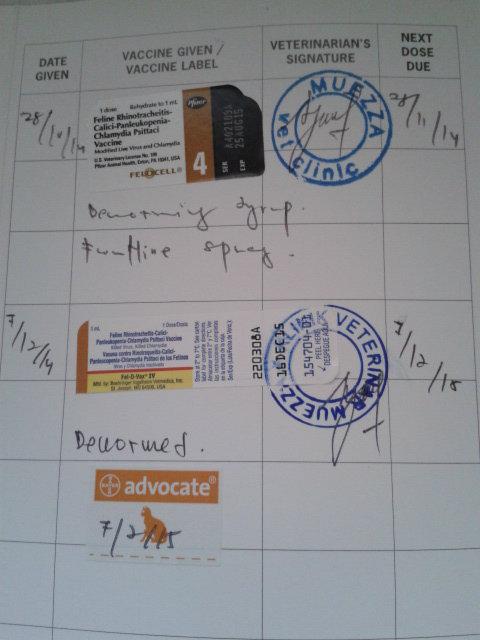 DATE GIVEN
VACCINE GIVEN / VACCINE LABEL
VETERINARIAN'S SIGNATURE
NEXT DOSE DUE
28/10/14
1 dose Rehydrate to 1 mL
Pfizer
Feline Rhinotracheitis-
Calici-Panleukopenia-
Chlamydia Psittaci
Vaccine
Modified Live Virus and Chlamydia
U.S. Veterinary License No. 189
Pfizer Animal Health, Exton, PA 19341, USA
FELOCELL®
4
SER A402103A
EXP 25AUG15
MUEZZA
Vet clinic
28/11/14
Deworming syrup.
Frontline spray.
7/12/14
1 mL 1 Dose/Dosis
Feline Rhinotracheitis-Calici-
Panleukopenia-Chlamydia Psittaci Vaccine
Killed Virus, Killed Chlamydia
Vacuna contra Rinotraqueitis-Calici-
Panleucopenia-Chlamydia Psittaci de los Felinos
Virus y Chlamydia Inactivados
Fel-O-Vax® IV
Mfd. by: Boehringer Ingelheim Vetmedica, Inc.
St. Joseph, MO 64506, USA
220308A
16DEC15
15H704-01
PEEL HERE
DESPEGUE AQUI
VETERINAR
MUEZZA
7/12/15
Dewormed.
BAYER
advocate®
7/2/15